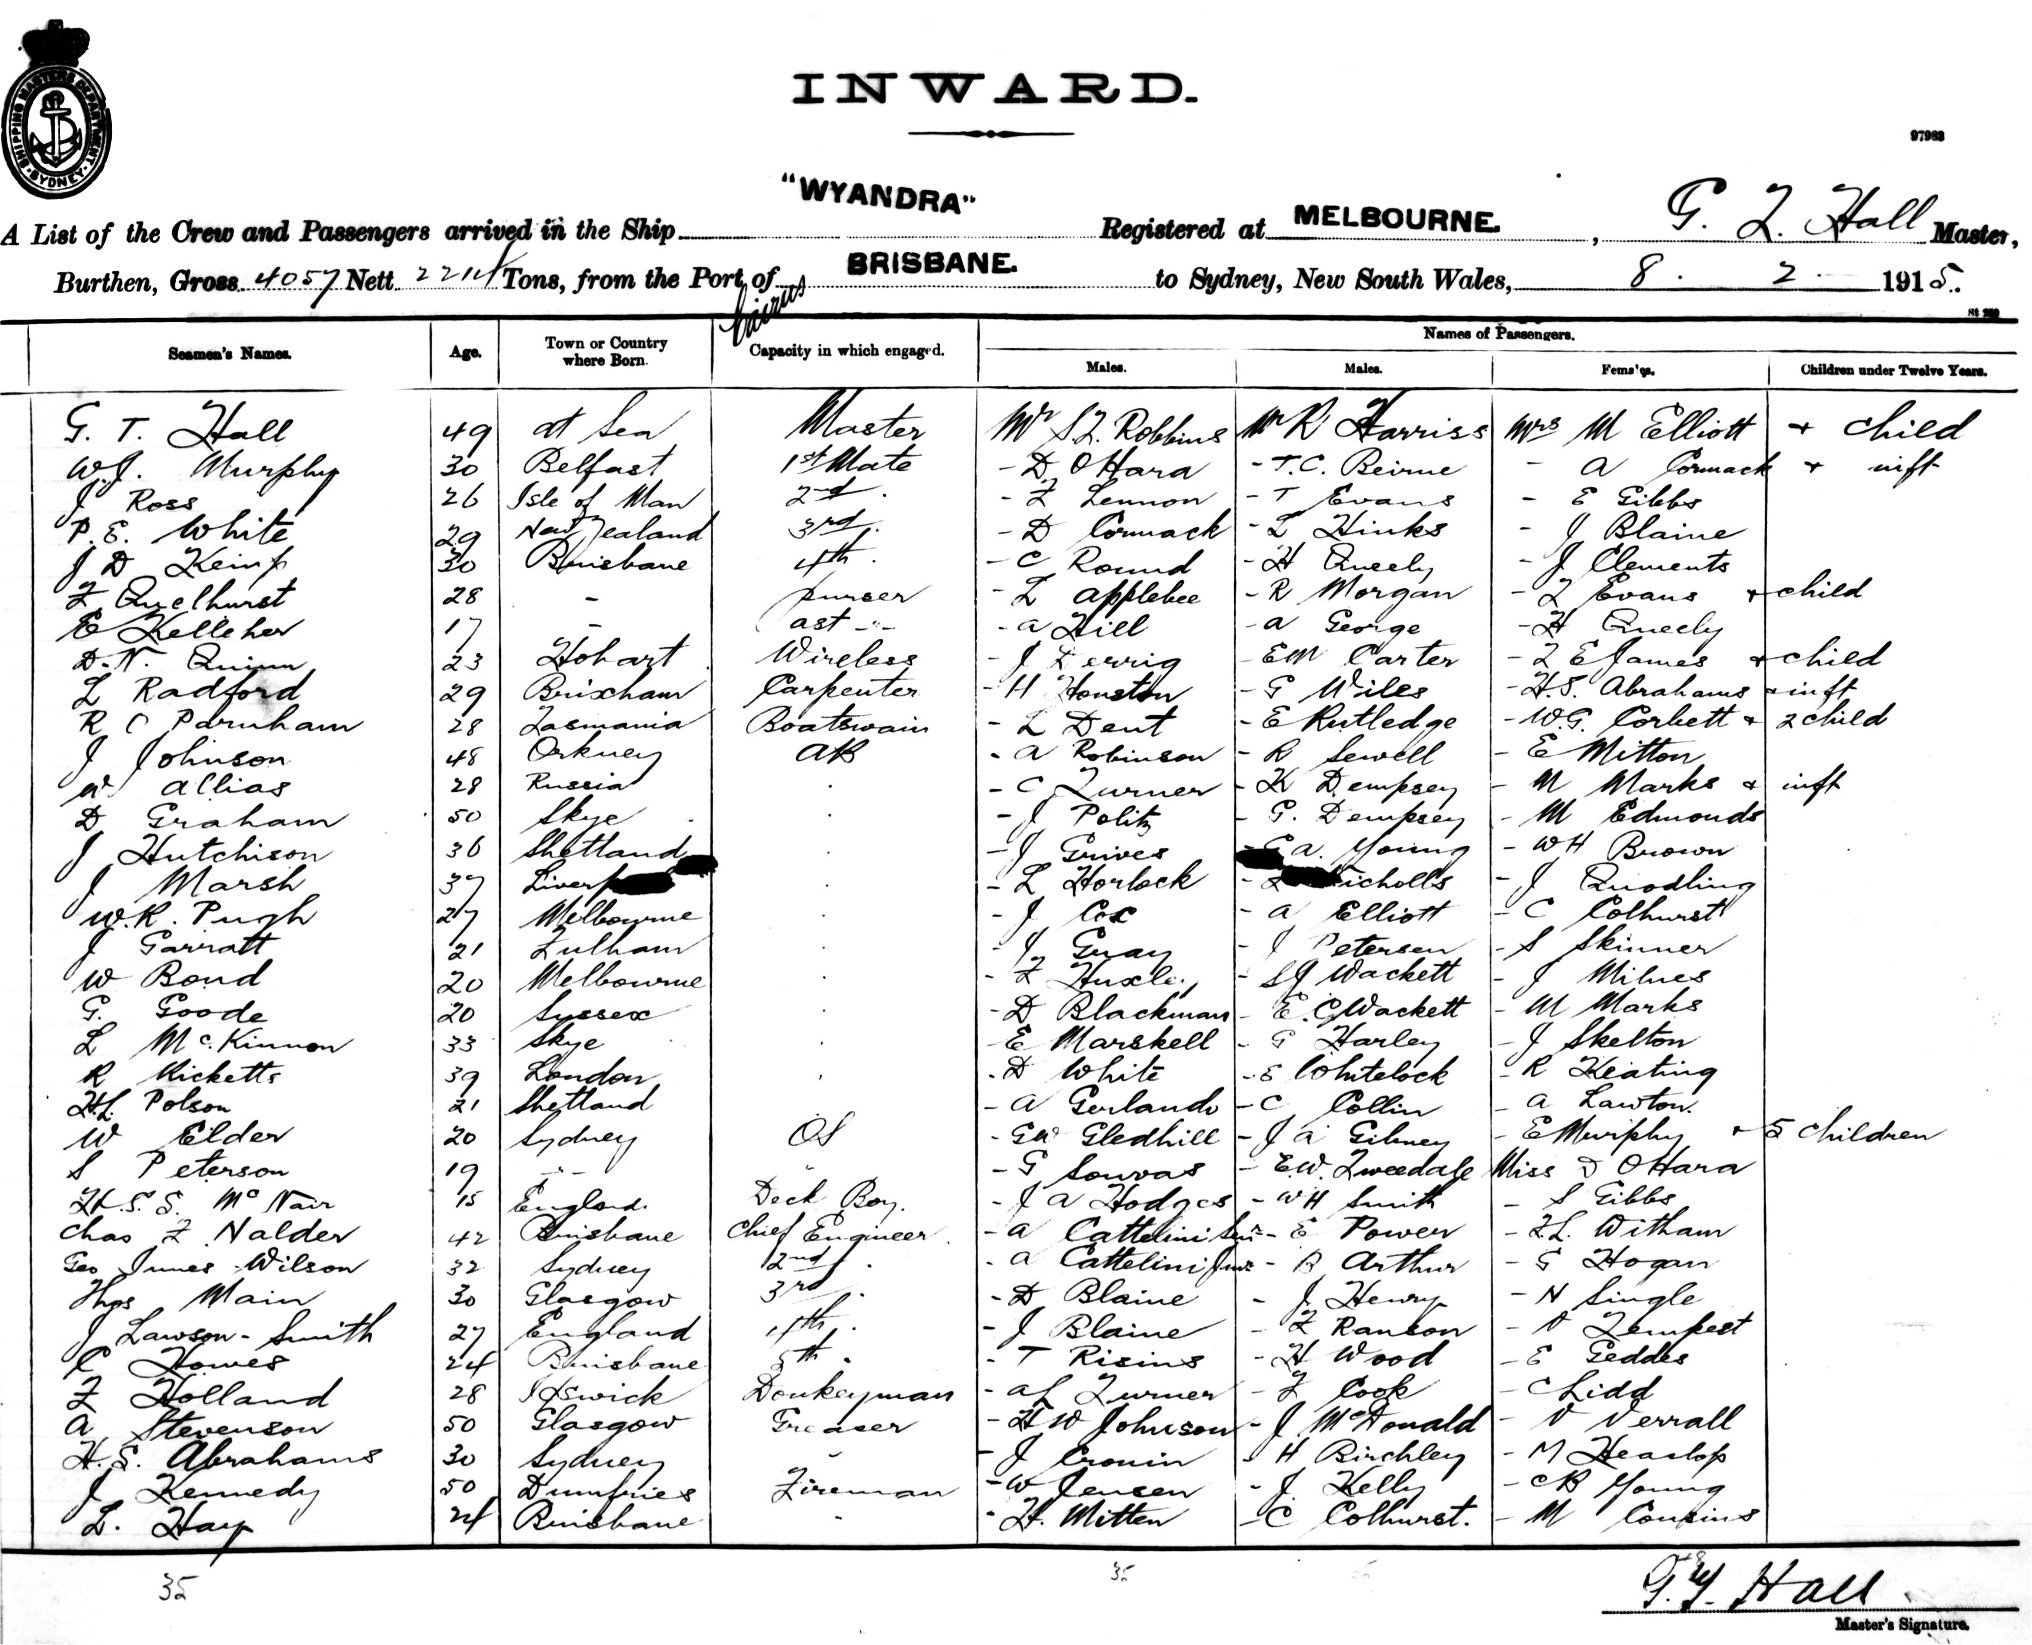 SHIPPING MASTERS DEPARTMENT · SYDNEY ·
INWARD.
97983
"WYANDRA"
A List of the Crew and Passengers arrived in the Ship Registered at MELBOURNE. , G. T. Hall Master,
Burthen, Gross 4057 Nett 2214 Tons, from the Port of BRISBANE. to Sydney, New South Wales, 8. 2. 1915.
Cairns
Seamen's Names. Age. Town or Country where Born. Capacity in which engaged. Names of Passengers.
Males. Males. Females. Children under Twelve Years.
G. T. Hall 49 at Sea Master Mr S.T. Robbins Mr R Harriss Mrs M Elliott + child
W.J. Murphy 30 Belfast 1st Mate - D OHara - T.C. Beirne - A Cormack + inft
J Ross 26 Isle of Man 2nd. - F Lennon - T Evans - E Gibbs
P. E. White 29 New Zealand 3rd. - D Cormack - L Hinks - J Blaine
J D Kemp 30 Brisbane 4th. - C Round - H Queely - J Clements
F Quelhurst 28 - purser - L Applebee - R Morgan - T Evans + child
E Kelleher 17 - ast -"- - A Hill - A George - H Queely
D.N. Quinn 23 Hobart Wireless - J Derrig - EM Carter - T E James + child
L Radford 29 Brixham Carpenter - H Houston - G Wiles - H.S. Abrahams + inft
R C Parnham 28 Tasmania Boatswain - L Dent - E Rutledge - W.G. Corbett + 2 child
J Johnson 48 Orkney AB - A Robinson - R Sewell - E Mitton
W Allias 28 Russia . - C Turner - K Dempsey - M Marks + inft
D Graham 50 Skye . - J Politz - G. Dempsey - M Edmonds
J Hutchison 36 Shetland . - J Grives A. Young - WH Brown
J Marsh 37 . - L Horlock - icholls - J Quodling
W.R. Pugh 27 Melbourne - J Cox - A Elliott - C Colhurst
J Garratt 21 Fulham . - J Gray - J Petersen - S Skinner
W Bond 20 Melbourne . - F Huxley - SJ Wackett - J Milnes
G. Goode 20 Sussex . - D Blackman - E. C Wackett - M Marks
L McKinnon 33 Skye . - E Marskell - G Harley - J Skelton
R Ricketts 39 London . - D White - E Whitelock - R Keating
H.L. Polson 21 Shetland - A Gerlando - C Collin - A Lawton.
W Elder 20 Sydney OS - GW Gledhill - J A Gibney - E Murphy + 5 children
S Peterson 19 -"- " - G Souvas - E.W. Tweedale Miss D OHara
H.S.S. McNair 15 England. Deck Boy. - J A Hodges - WH Smith - S Gibbs
Chas F Nalder 42 Brisbane Chief Engineer. - A Cattelini Senr - E Power - F.L. Witham
Geo Innes Wilson 32 Sydney 2nd. - A Cattelini Junr - R Arthur - G Hogan
Thos Main 30 Glasgow 3rd. - D Blaine - J. Henry - N Single
J Lawson-Smith 27 England 4th. - J Blaine - F Ranson - V Tempest
C Howes 24 Brisbane 5th. - T Risins - H Wood - E Geddes
F Holland 28 Ipswick Donkeyman - AL Turner - F Cook - C Lidd
A Stevenson 50 Glasgow Greaser - H W Johnson - J McDonald - V Verrall
H.S. Abrahams 30 Sydney - - J Cronin - H Birchley - M Heaslop
J Kennedy 50 Dumfries Fireman - W Jensen - J. Kelly - CB Young
L. Hay 24 Brisbane - - H. Mitten - C Colhurst. - M Cousins
35 35
G.T. Hall
Master's Signature.